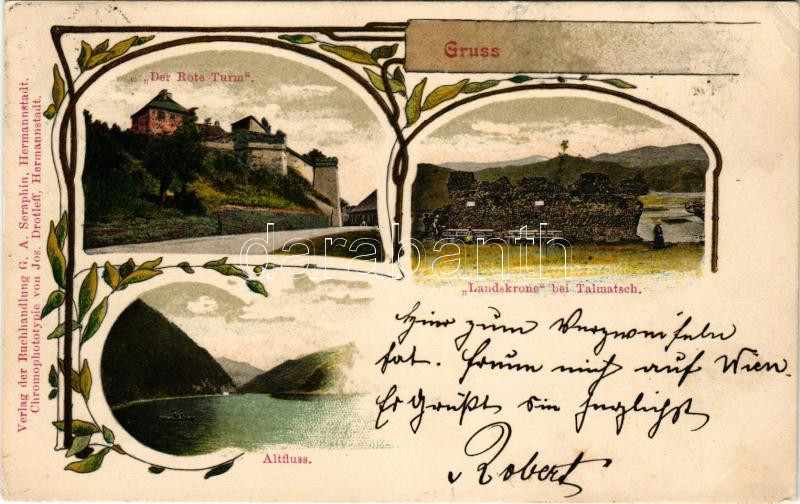 Gruss
„Der Rote Turm“.
„Landskrone“ bei Talmatsch.
Altfluss.
Verlag der Buchhandlung G. A. Seraphin, Hermannstadt.
Chromophototypie von Jos. Drotleff, Hermannstadt.
darabanth
Hier zum Verzweifeln
fat. Freue mich auf Wien.
Es Grüßt Sie
Robert